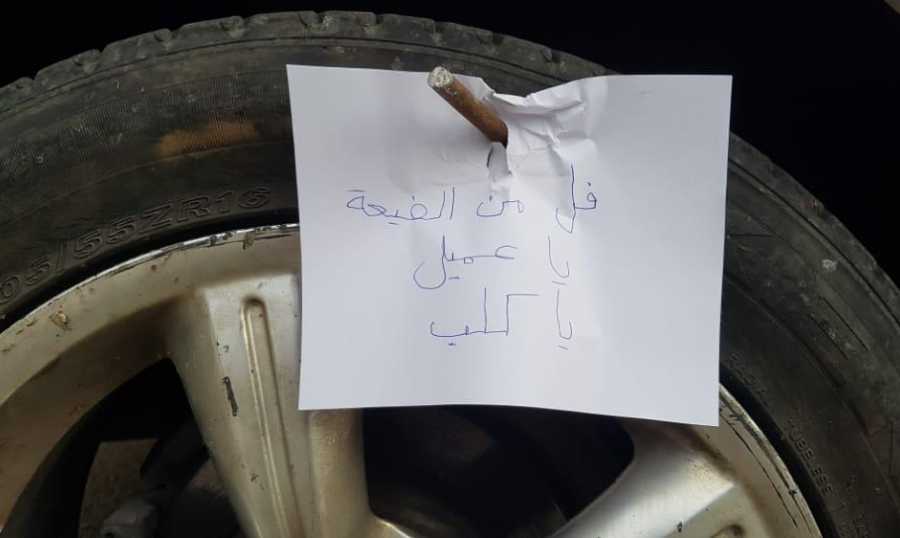 فل من الضيعة
يا عميل
يا كلب
55ZR16